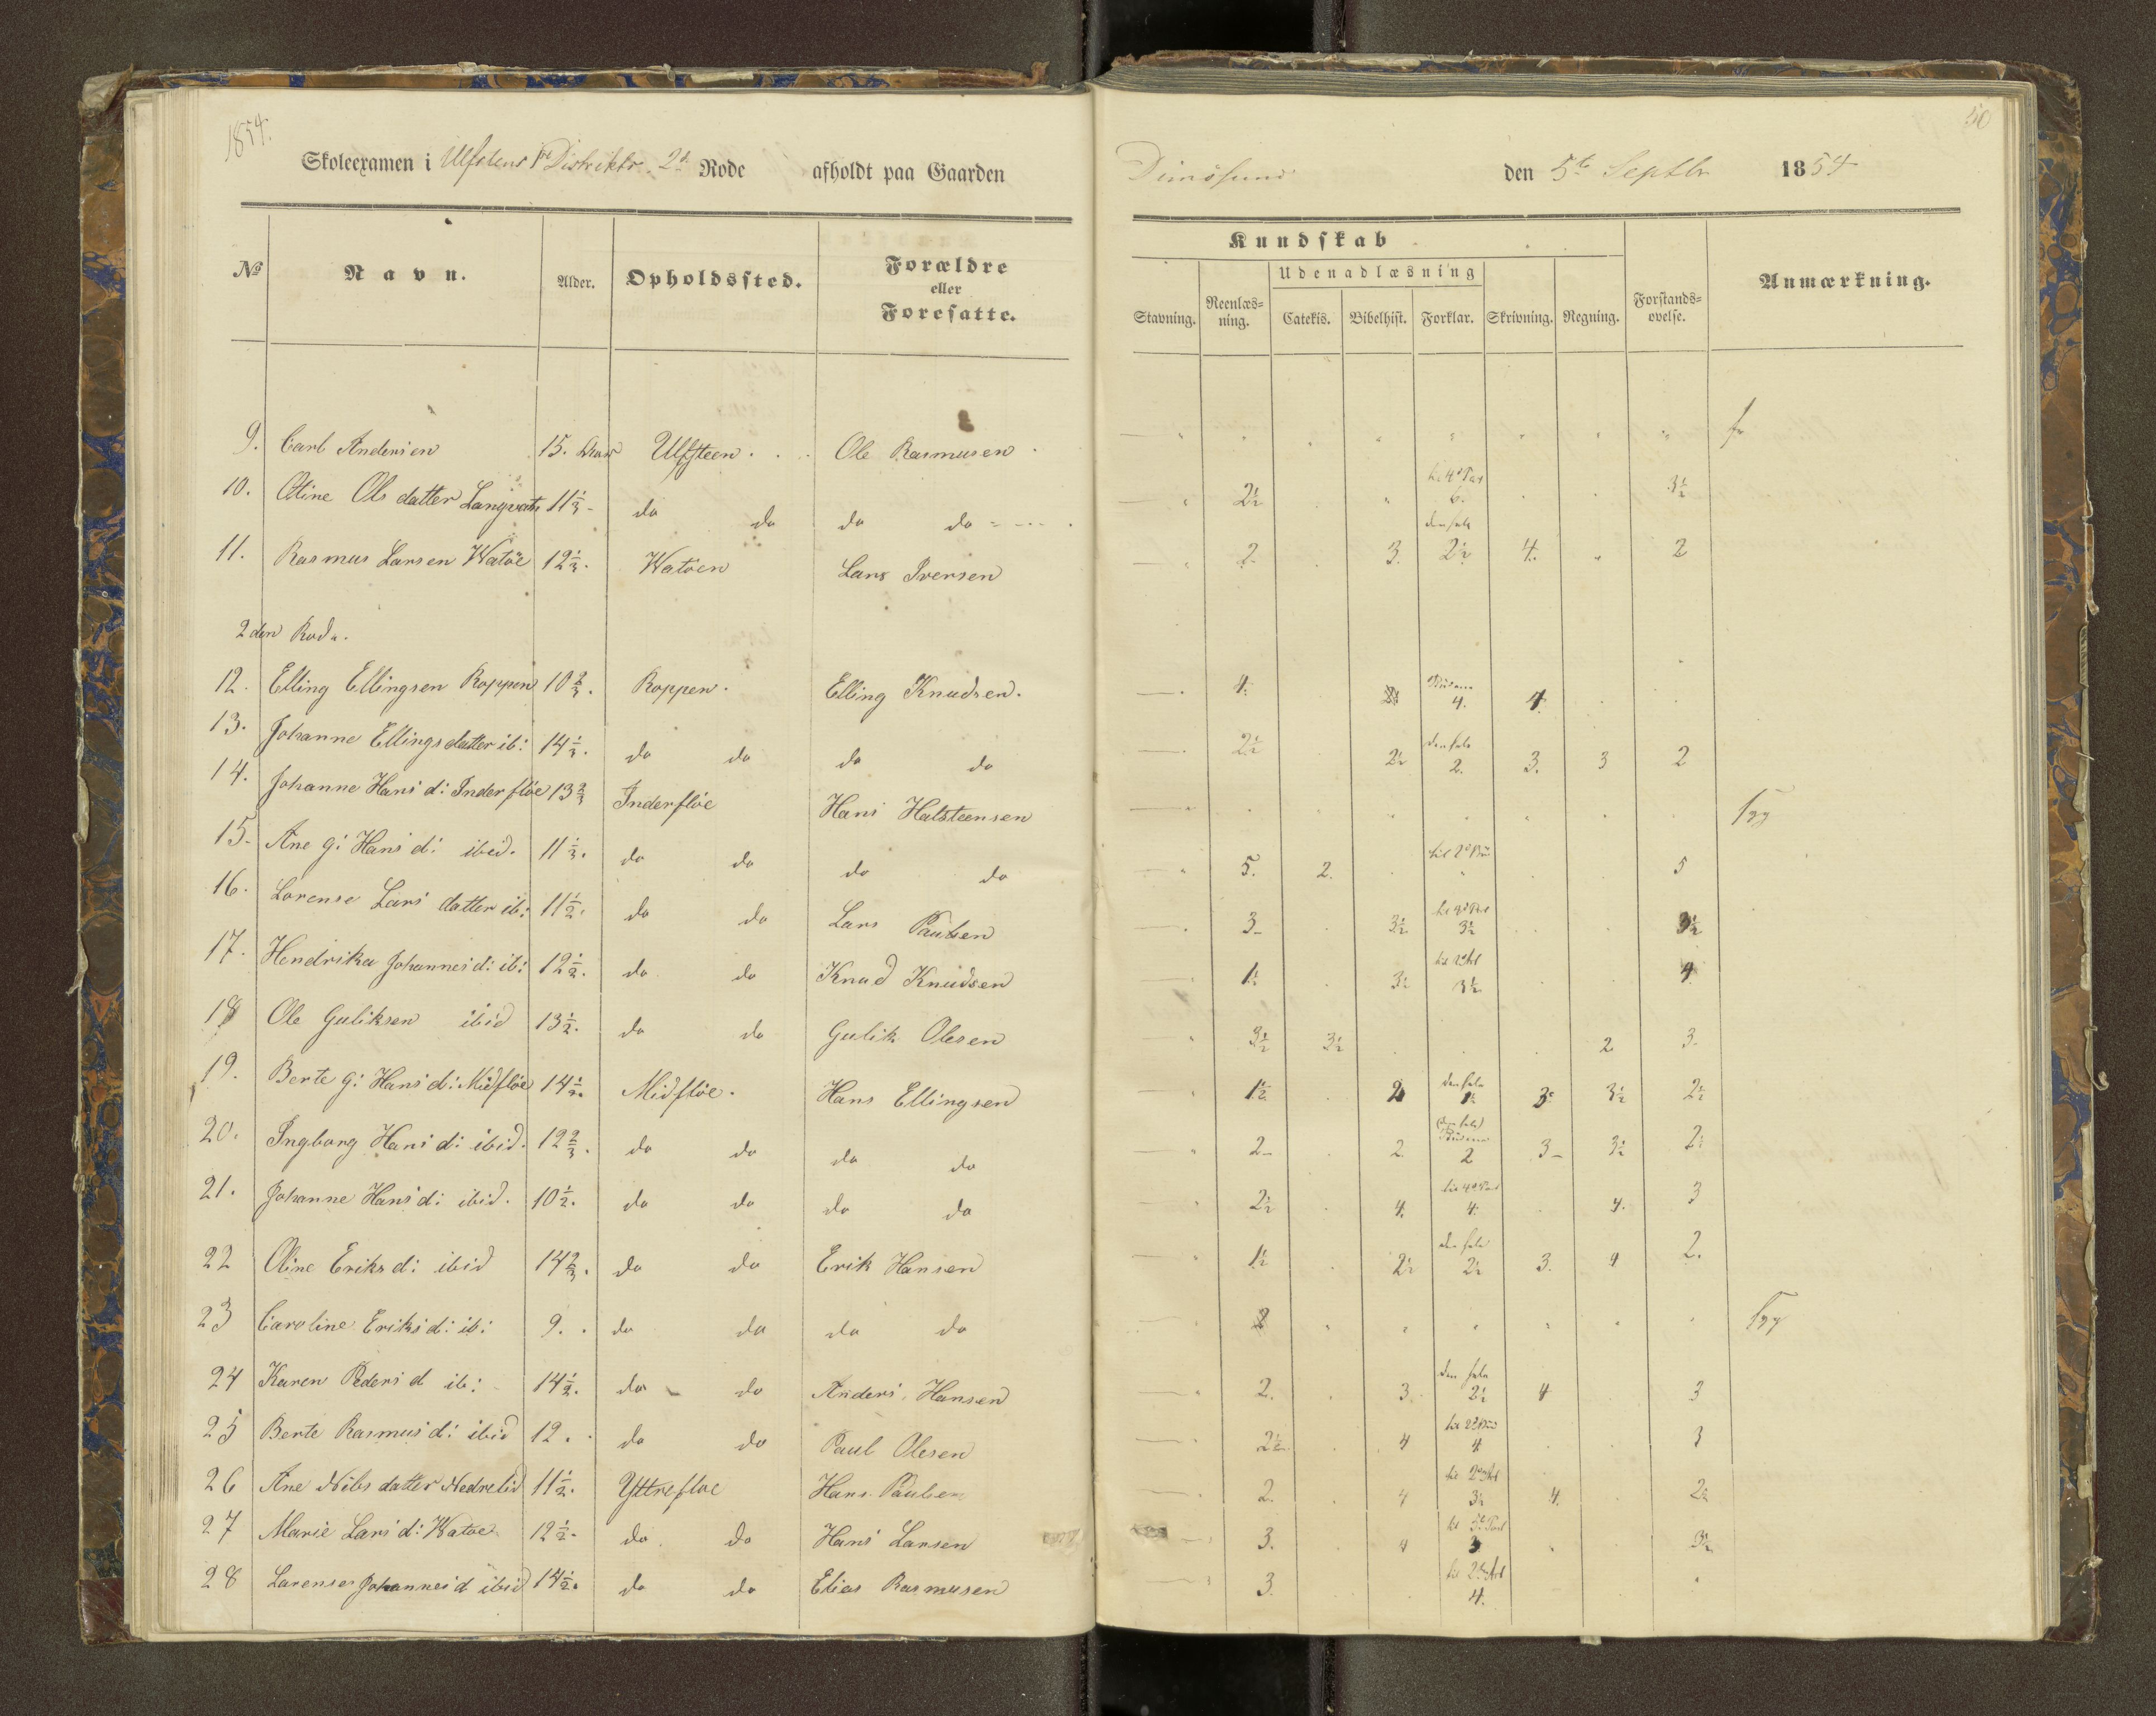 1854.
50
Skoleexamen i Ulfstens 1ste Distrikts 2d Rode afholdt paa Gaarden Dimösund den 5te Septbr 1854
Kundskab
Udenadlæsning
№ Navn. Alder. Opholdssted. Forældre eller Foresatte. Stavning. Reenlæs=ning. Catekis. Bibelhist. Forklar. Skrivning. Regning. Forstands=øvelse. Anmærkning.
9. Carl Andersen 15. Ulfsteen. Ole Rasmusen fr
10. Oline Olsdatter Langvatn 11 1/3 do do do do 2 1/2 til 4d Part 6. 3 1/2
11. Rasmus Larsen Watöe 12 1/3. Watöen Lars Iversen 2. 3. den hele 2 1/2 4. 2
2den Rode.
12. Elling Ellingsen Roppen 10 2/3. Roppen. Elling Knudsen. 4. 4. 4
13. Johanne Ellingsdatter ib: 14 1/3. do do do do 2 1/2 2 1/2 den hele 2. 3. 3 2
14. Johanne Hans d: Inderflöe 13 2/3 Inderflöe Hans Halsteensen syg
15. Ane G: Hans d: ibid. 11 1/3. do do do do 5. 2. 5
16. Lorense Lars datter ib: 11 1/2. do do Lars Paulsen 3 3 1/2 3 1/2 3 1/2
17. Hendrika Johannes d: ib: 12 1/2. do do Knud Knudsen 1 1/2 3 1/2 3 1/2 4
18 Ole Guliksen ibid 13 1/2. do do Gulik Olesen 3 1/2 3 1/2 2 3
19. Berte G: Hans d: Midflöe 14 1/2. Midflöe. Hans Ellingsen 1 1/2 2 den hele 1 1/2 3 3 1/2 2 1/2
20. Ingborg Hans d: ibid. 12 2/3. do do do do 2 2. (den hele) 2 3 3 1/2 2 1/2
21. Johanne Hans d: ibid. 10 1/2. do do do do 2 1/2 4. til 4d Part 4. 4. 3
22 Oline Eriks d: ibid 14 2/3. do do Erik Hansen 1 1/2 2 1/2 den hele 2 1/2 3. 4 2.
23 Caroline Eriks d: ib: 9. do do do do syg
24 Karen Peders d ib: 14 1/2. do do Anders Hansen 2. 3. den hele 2 1/2 4 3
25 Berte Rasmus d: ibid 12. do do Paul Olesen 2 1/2 4 4 3
26 Ane Nils datter Nedrelid 11 1/2. Yttreflöe Hans Paulsen 2. 4 3 1/2 4. 2 1/2
27 Marie Lars d: Watöe 12 1/2. do do Hans Larsen 3. 4 3 3 1/2
28 Lorense Johannes d ibid 14 1/2. do do Elias Rasmusen 3. 4.